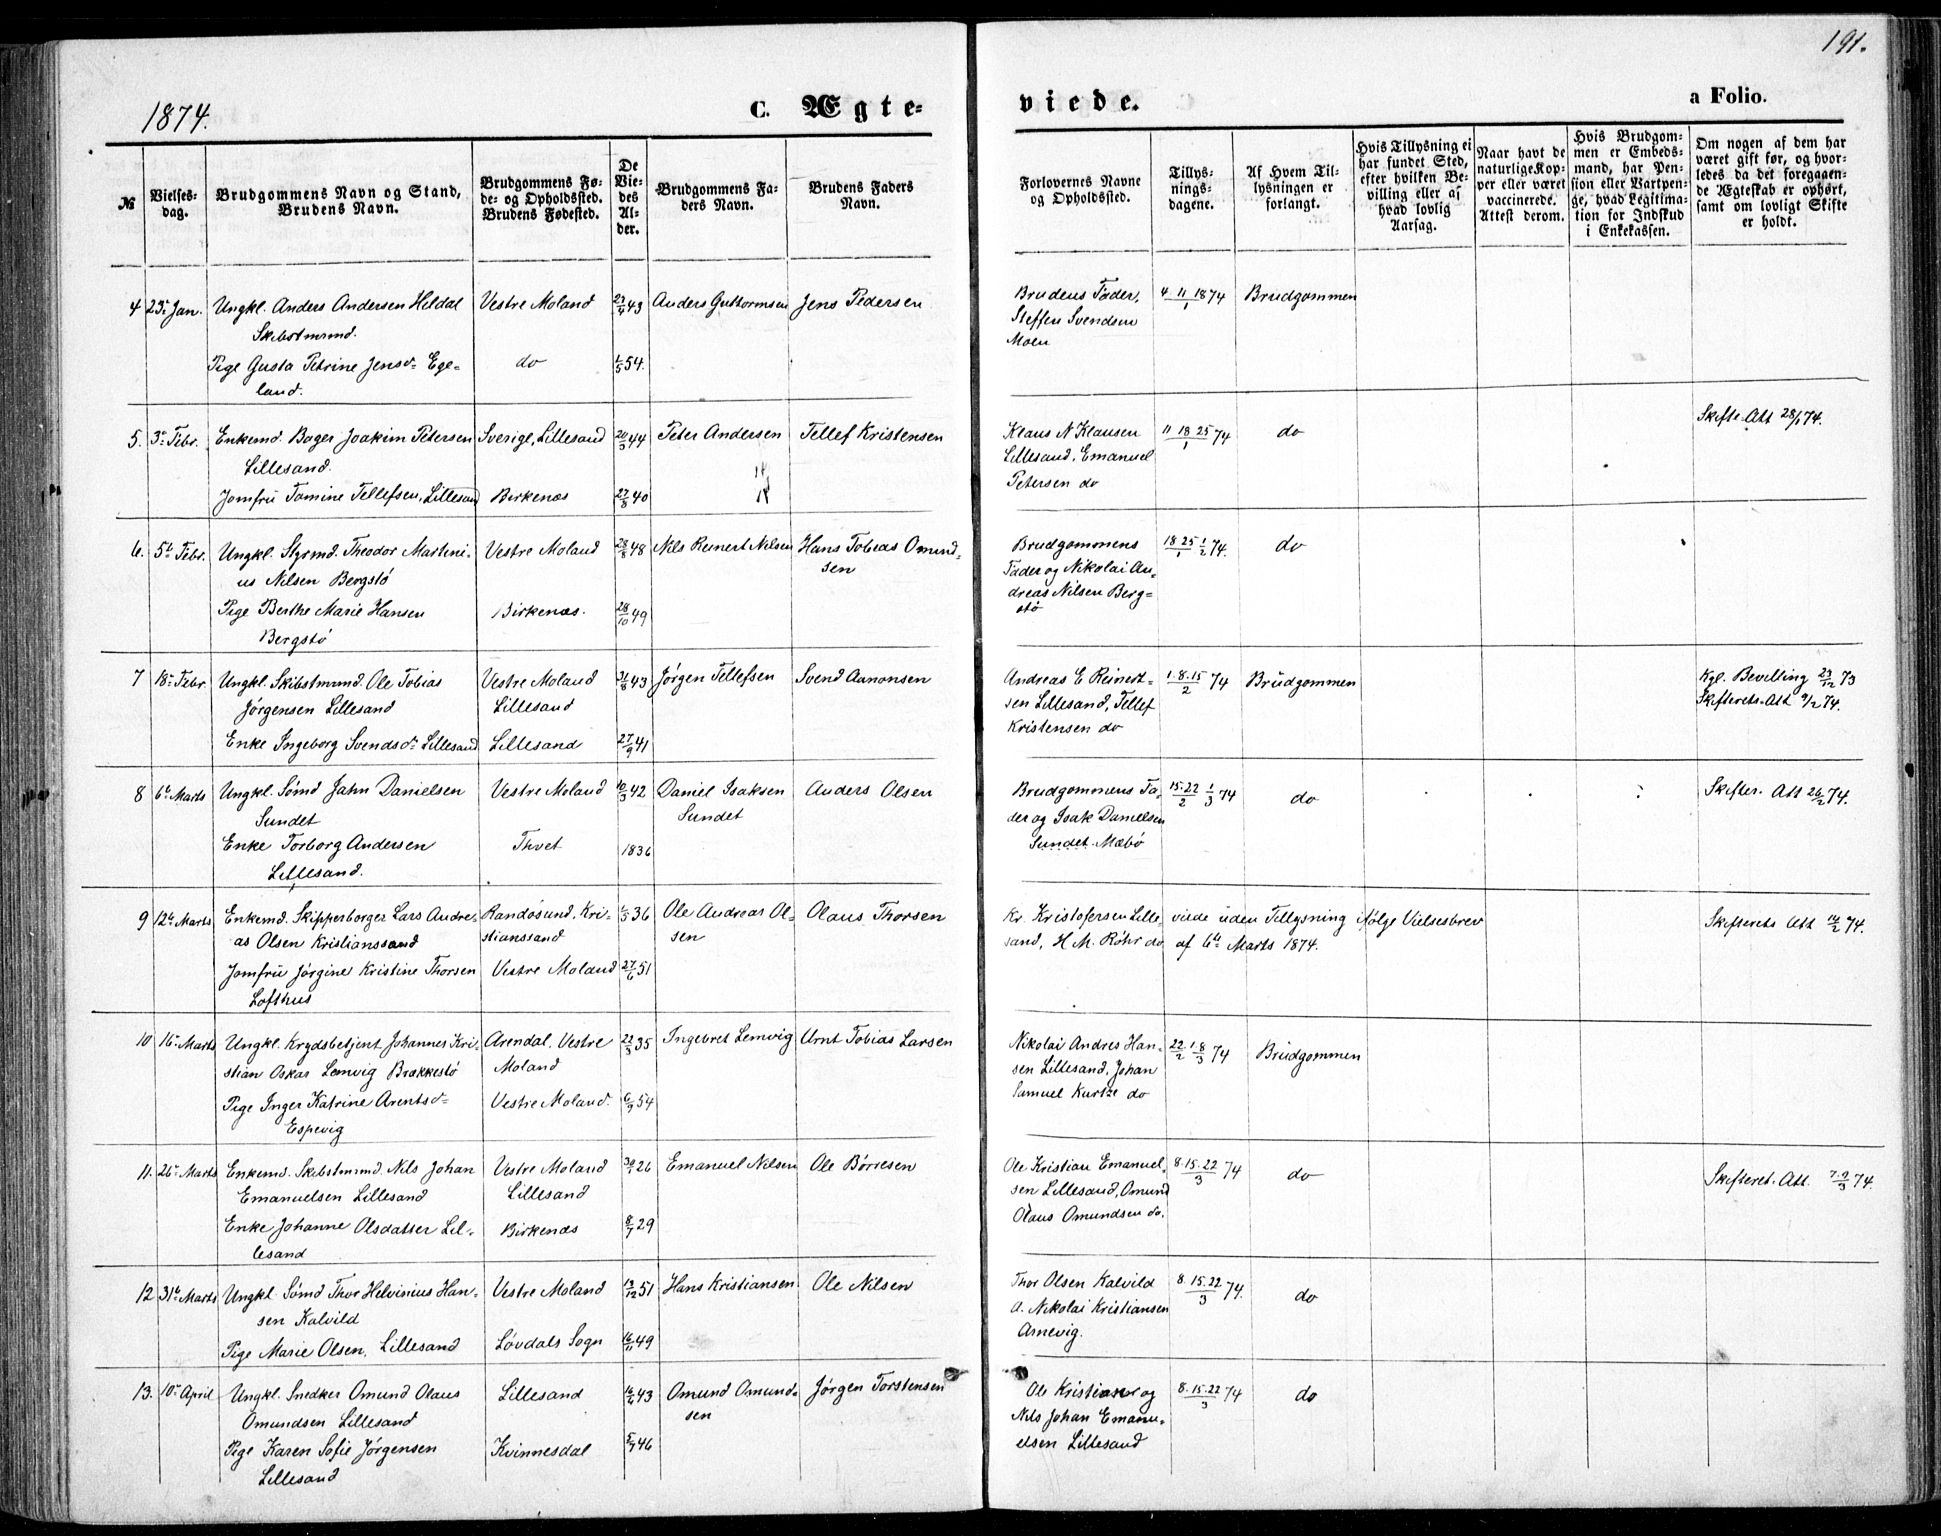 191.
1874.
C. Ægte-
viede.
a Folio.
№
Vielses-
dag.
Brudgommens Navn og Stand,
Brudens Navn.
Brudgommens Fø-
de- og Opholdssted.
Brudens Fødested.
De
Vie-
des
Al-
der.
Brudgommens Fa-
ders Navn.
Brudens Faders
Navn.
Forlovernes Navne
og Opholdssted.
Tillys-
nings-
dagene.
Af Hvem Til-
lysningen er
forlangt.
Hvis Tillysning ei
har fundet Sted,
efter hvilken Be-
villing eller af
hvad lovlig
Aarsag.
Naar havt de
naturlige Kop-
per eller været
vaccinerede.
Attest derom.
Hvis Brudgom-
men er Embeds-
mand, har Pen-
sion eller Vartpen-
ge, hvad Legitima-
tion for Indskud
i Enkekassen.
Om nogen af dem har
været gift før, og hvor-
ledes da det foregaaen-
de Ægteskab er ophørt,
samt om lovligt Skifte
er holdt.
4 23de Jan. Ungkl. Anders Andersen Heldal Vestre Moland 27/4 43 Anders Guttormsen Jens Pedersen
Skibstmrmd.
Pige Gusta Petrine Jensd. Ege- do 1/5 54.
land.
Brudens Fader, 4 11/1 1874 Brudgommen
Steffen Svendsen
Moen
5. 3de Febr. Enkemd. Bager Joakim Petersen Sverige, Lillesand 20/3 44 Peter Andersen Tellef Kristensen
Lillesand.
Jomfru Tomine Tellefsen, Lillesand Birkenæs 27/8 40
Klaus N Klausen 11 18 25/1 74 do Skifte-Att 28/1 74.
Lillesand, Emanuel
Petersen do
6. 5te Febr. Ungkl. Styrmd. Theodor Martini- Vestre Moland 28/8 48 Nils Reinert Nilsen Hans Tobias Omund-
us Nilsen Bergstö sen
Pige Berthe Marie Hansen Birkenæs. 28/10 49
Bergstö
Brudgommens 18 25/1 1/2 74. do
Fader og Nikolai An-
dreas Nilsen Berg-
stö
7 18de Febr. Ungkl. Skibstmrmd. Ole Tobias Vestre Moland 31/8 43 Jörgen Tellefsen Svend Aanonsen
Jörgensen Lillesand Lillesand
Enke Ingeborg Svendsd. Lillesand Lillesand 27/9 41
Andreas E Reinert- 1.8.15/2 74 Brudgommen Kgl. Bevilling 23/12 73
sen Lillesand, Tellef Skifterets-Att 9/2 74.
Kristensen do
8 6te Marts Ungkl. Sömd Jahn Danielsen Vestre Moland 10/3 42 Daniel Isaksen Anders Olsen
Sundet Sundet
Enke Torborg Andersen Thvet 1836
Lillesand.
Brudgommens Fa- 15.22/2 1/3 74 do Skifter. Att 26/2 74.
der og Isak Danielsen
Sundet. Mæbö
9 12te Marts Enkemd. Skipperborger Lars Andre- Randösund, Kri- 1/5 36 Ole Andreas Ol- Olaus Thorsen
as Olsen Kristianssand stianssand sen
Jomfru Jörgine Kristine Thorsen Vestre Moland 27/6 51
Lofthus
Kr. Kristofersen Lille- viede uden Tillysning ifölge Vielsesbrev Skifterets Att 14/2 74.
sand, H M. Röhr do af 6te Marts 1874.
10 16de Marts Ungkl. Krydsbetjent Johannes Kri- Arendal, Vestre 22/3 35 Ingebret Lemvig Arnt Tobias Larsen
stian Oskar Lemvig Brækkestö Moland
Pige Inger Katrine Arentsd. Vestre Moland. 6/9 54
Espevig
Nikolai Andres Han- 22/2 1.8/3 74 Brudgommen
sen Lillesand, Johan
Samuel Kurtze do
11. 26de Marts Enkemd. Skibstmrmd. Nils Johan Vestre Moland 30/1 26 Emanuel Nilsen Ole Börresen
Emanuelsen Lillesand Lillesand
Enke Johanne Olsdatter Lil- Birkenæs 8/7 29
lesand
Ole Kristian Emanuel- 8.15.22/3 74 do Skifteret. Att. 7.9/3 74.
sen Lillesand, Omund
Olaus Omundsen do.
12 31te Marts Ungkl Sömd Thor Helvinius Han- Vestre Moland 13/12 51 Hans Kristiansen Ole Nilsen
sen Kalvild
Pige Marie Olsen, Lillesand Lövdals Sogn 16/11 49
Thor Olsen Kalvild 8.15.22/3 74. do
o. Nikolai Kristiansen
Arnevig.
13. 10de April Ungkl. Snedker Omund Olaus Lillesand 16/4 43 Omund Omund- Jörgen Torstensen
Omundsen Lillesand sen
Pige Karen Sofie Jörgensen Kvinnesdal 5/7 46
Lillesand
Ole Kristian og 8.15.22/3 74 do
Nils Johan Emanu-
elsen Lillesand